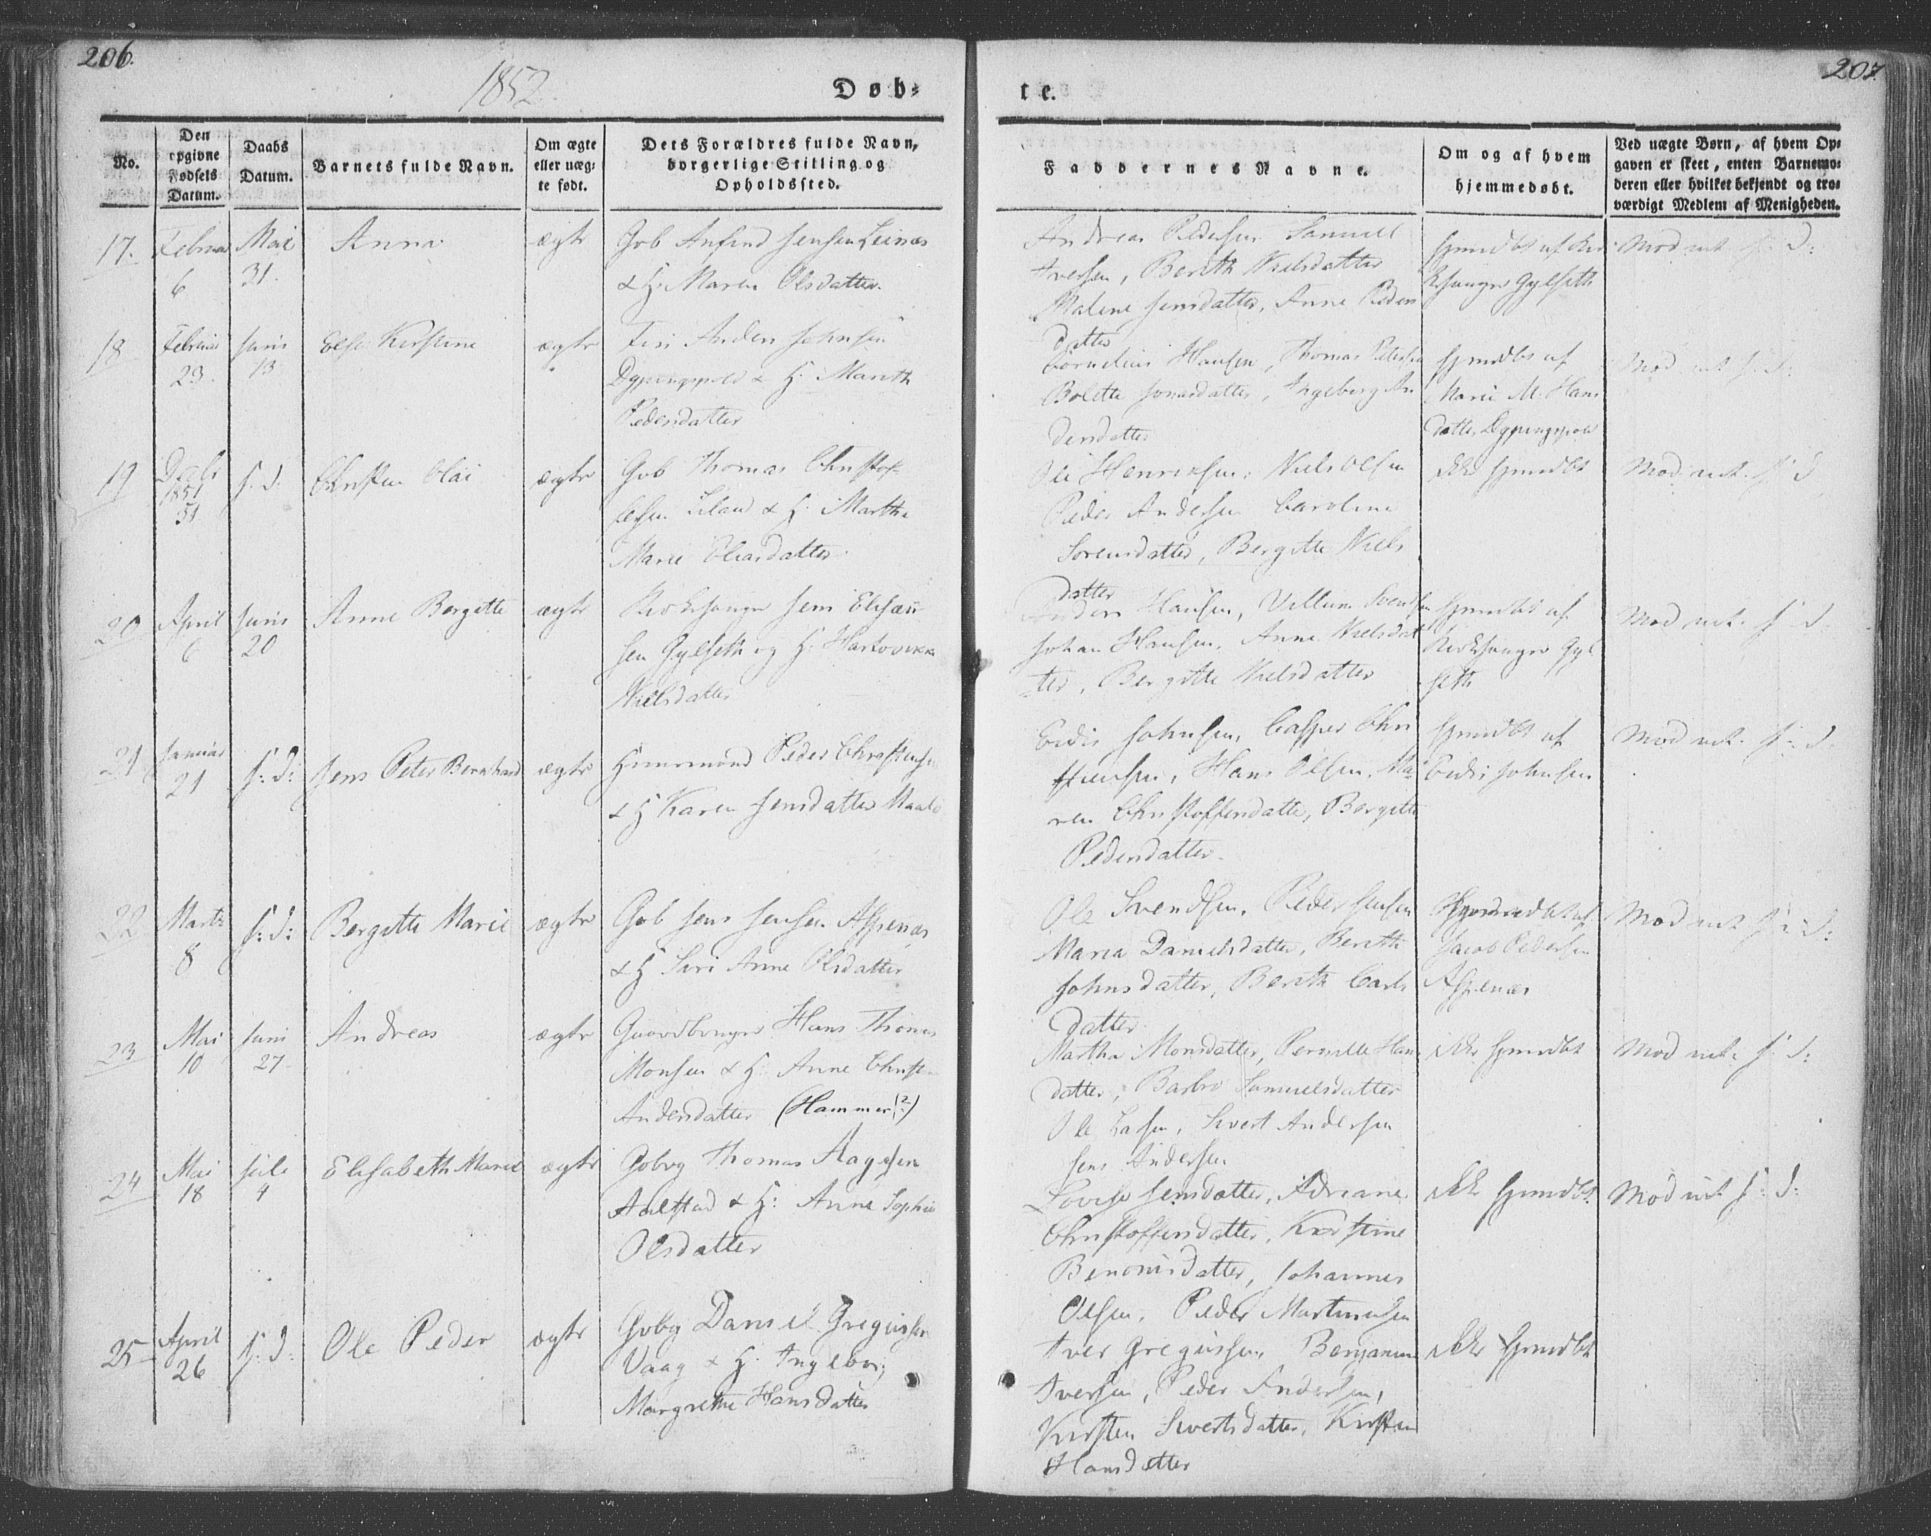 206.
1852
Døb-
te.
207.
No.
Den opgivne Fødsels Datum.
Daabs Datum.
Barnets fulde Navn.
Om ægte eller uægte født.
Dets Forældres fulde Navn, borgerlige Stilling og Opholdssted.
Faddernes Navne.
Om og af hvem hjemmedøbt.
Ved uægte Børn, af hvem Opgaven er skeet, enten Barnemoderen eller hvilket bekjendt og troværdigt Medlem af Menigheden.
17.
Februar 6
Mai 31.
Anna
ægte
Gb Anfind Jensen Leinæs
& H: Maren Olsdatter.
Andreas Pedersen Samuel
Iversen, Berith Nielsdatter
Malene Jensdatter, Anne Peders
datter
hjmdbt af Kir
kesanger Gylseth
Mod vat. f: d:
18
Februar 23.
Juni 13
Else Kirstine
ægte
Anders Johnsen
& H: Mareth
Pedersdatter
Cornelius Hansen, Thomas Petersen
Bolette Jonasdatter, Ingeborg An
dersdatter
hjmdbt af
Marie M. Hans
datter
Mod vat f: d:
19
1851
31
f. d.
Christen Olai
ægte
Gb Thomas Christof
fersen & H: Martha
Marie Eliasdatter.
Ole Henriksen, Niels Olsen
Peder Andersen Caroline
Sørensdatter, Bergitte Niels
datter
ikke hjmdbt
Mod vat. f: d
20
April 6
Juni 20
Anne Bergitte
ægte
Kirkesanger Jens Elisæus
sen Gylseth og H: Hartvikka
Nielsdatter
Anders Hansen, Villum Svendsen
Johan Hansen, Anne Nielsdat
ter, Bergitte Nielsdatter
hjmdbt af
Kirkesanger Gyl
seth
Mod vat. f: d.
21
Januar 21
f: d:
Jens Peter Bernhard
ægte
Huusmand Peder Christensen
& H Karen Jensdatter
Eidis Johnsen, Casper Chri
stensen, Hans Olsen, Ma
ren Christoffersdatter, Bergitte
Pedersdatter.
hjmdbt af
Eidis Johnsen
Mod vat. f: d.
22
Marts 8
f: d:
Bergitte Marie
ægte
Gb Jens Jensen Aspenæs
& H Siri Anne Olsdatter
Ole Svendsen, Peder Jensen
Maria Danielsdatter, Berith
Johnsdatter, Berith Carls
datter
Hjemmedbt af
Jacob Pedersen
Aspenæs
Mod vat f: d:
23
Mai 10
Juni 27
Andreas
ægte
Gaardbruger Hans Thomas
Monsen & H: Anne Christ
Andersdatter (Hammer?)
Martha Monsdatter, Pernille Hans
datter, Barbro Samuelsdatter
Ole Larsen, Sivert Andersen
Jens Andersen
ikke hjmdbt
Mod vat. f: d:
24
Mai 18
Juli 4
Elisabeth Marie
ægte
Gbrg Thomas Aagesen
Aalstad & H: Anne Sophie
Olsdatter
Lovise Jensdatter, Adriane
Christoffersdatter, Kirstine
Benonisdatter, Johannes
Olsen, Peder Martinussen
ikke hjmdbt
Mod vat f: d:
25
April 26
f: d:
Ole Peder
ægte
Gbrg Daniel Gregussen
Vaag & H: Ingeborg
Margrethe Hansdatter
Iver Gregussen, Benjamin
Iversen, Peder Andersen,
Kirsten Sivertsdatter, Kirsten
Hansdatter
ikke hjmdbt